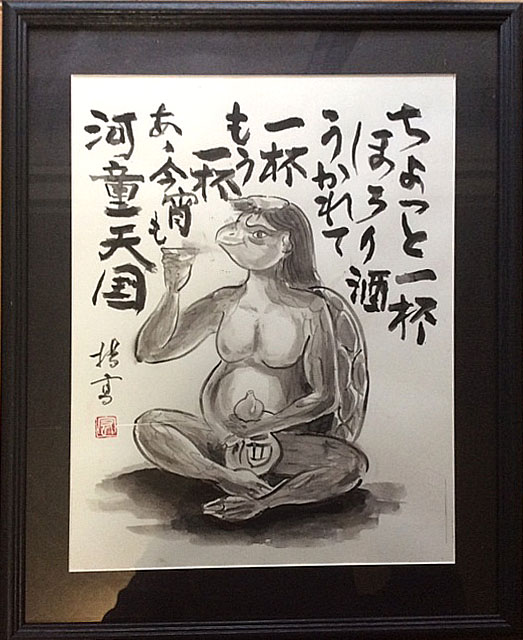 ちょっと一杯
ほろり酒
うかれて
一杯
もう
一杯
あゝ今宵も
河童天国